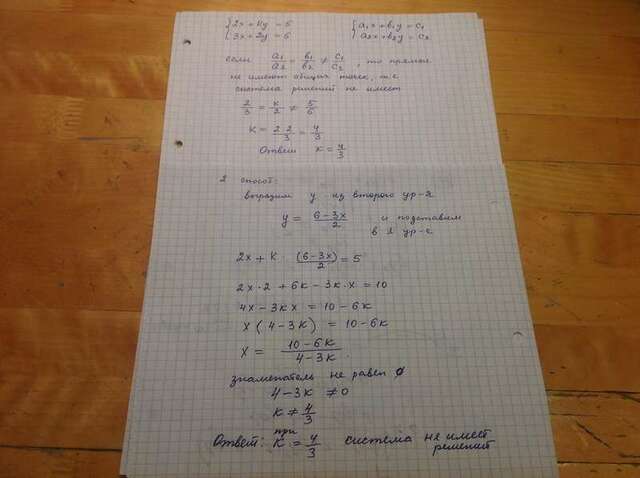 2x + ky = 5
3x + 2y = 6
a₁x + b₁y = c₁
a₂x + b₂y = c₂
если a₁/a₂ = b₁/b₂ ≠ c₁/c₂, то прямые
не имеют общих точек, т.е
система решений не имеет
2/3 = k/2 ≠ 5/6
K = 2·2/3 = 4/3
Ответ x = 4/3
2 способ:
выразим y из второго ур-я
y = (6-3x)/2 и подставим
в 1 ур-е
2x + k · (6-3x)/2 = 5
2x·2 + 6k - 3k·x = 10
4x - 3kx = 10 - 6k
x (4-3k) = 10-6k
x = (10-6k)/(4-3k)
знаменатель не равен 0
4-3k ≠ 0
k ≠ 4/3
Ответ: при k = 4/3 система не имеет
решений